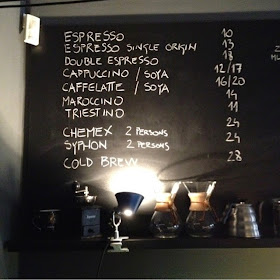 ESPRESSO 10
ESPRESSO SINGLE ORIGIN 13
DOUBLE ESPRESSO 18
CAPPUCCINO / SOYA 12/17
CAFFELATTE / SOYA 16/20
MAROCCINO 14
TRIESTINO 11
CHEMEX 2 PERSONS 24
SYPHON 2 PERSONS 24
COLD BREW 28